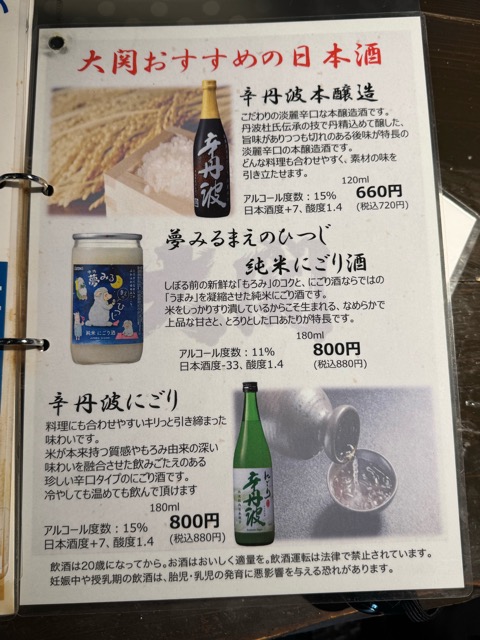 大関おすすめの日本酒
辛丹波本醸造
こだわりの淡麗辛口な本醸造酒です。
丹波杜氏伝承の技で丹精込めて醸した、
旨味がありつつも切れのある後味が特長の
淡麗辛口の本醸造酒です。
どんな料理も合わせやすく、素材の味を
引き立たせます。
120ml
アルコール度数：15% 660円
日本酒度+7、酸度1.4 (税込720円)
辛丹波
夢みるまえのひつじ
純米にごり酒
しぼる前の新鮮な「もろみ」のコクと、にごり酒ならではの
「うまみ」を凝縮させた純米にごり酒です。
米をしっかりすり潰しているからこそ生まれる、なめらかで
上品な甘さと、とろりとした口あたりが特長です。
180ml
アルコール度数：11% 800円
日本酒度-33、酸度1.4 (税込880円)
夢みる
まえの
ひつじ
純米 にごり酒
辛丹波にごり
料理にも合わせやすいキリっと引き締まった
味わいです。
米が本来持つ質感やもろみ由来の深い
味わいを融合させた飲みごたえのある
珍しい辛口タイプのにごり酒です。
冷やしても温めても飲んで頂けます
180ml
アルコール度数：15% 800円
日本酒度+7、酸度1.4 (税込880円)
にごり
辛丹波
飲酒は20歳になってから。お酒はおいしく適量を。飲酒運転は法律で禁止されています。
妊娠中や授乳期の飲酒は、胎児・乳児の発育に悪影響を与える恐れがあります。